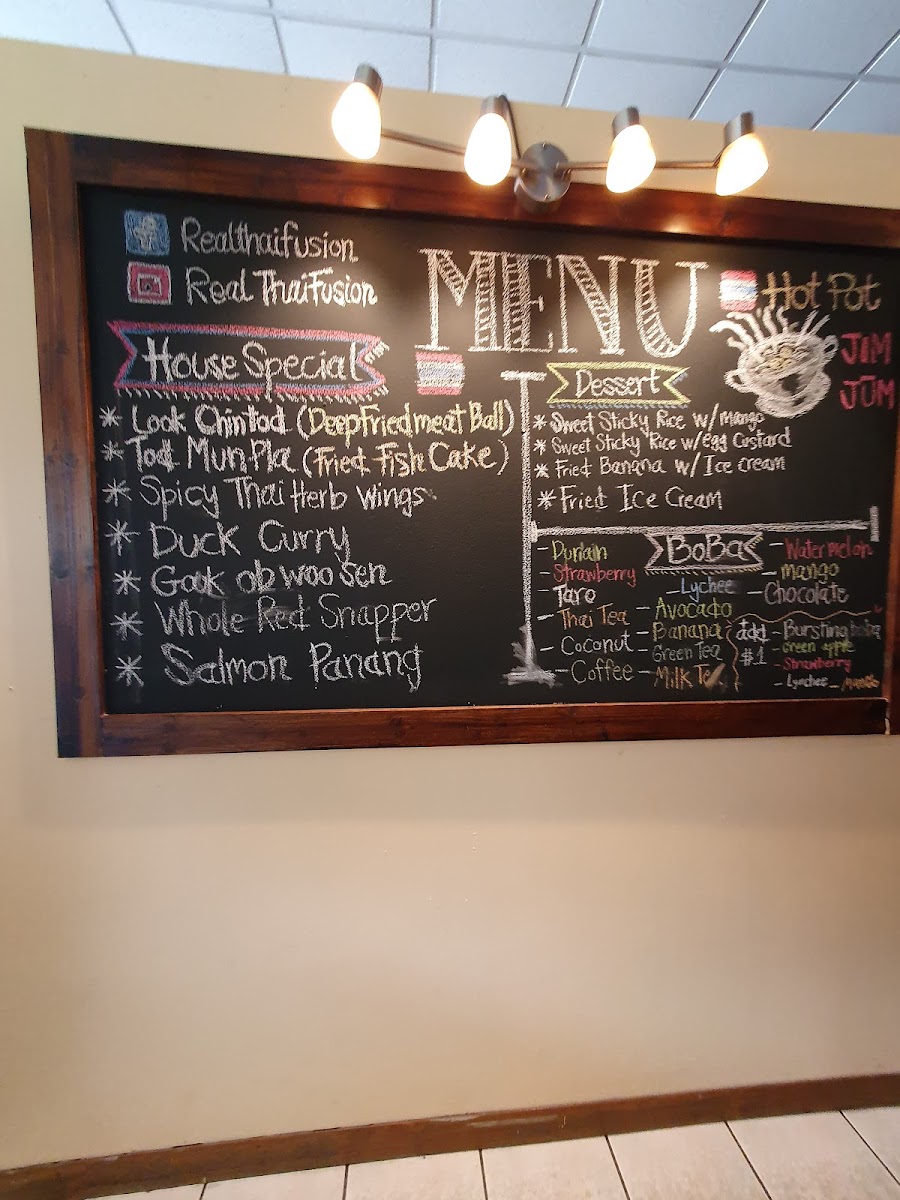 Realthaifusion
Real ThaiFusion
MENU
Hot Pot
JIM
JUM
House Special
* Look Chin Tod (Deep Fried meat Ball)
* Tod Mun Pla (Fried Fish Cake)
* Spicy Thai Herb Wings
* Duck Curry
* Gook ob woo Sen
* Whole Red Snapper
* Salmon Panang
Dessert
* Sweet Sticky Rice w/ mango
* Sweet Sticky Rice w/egg Custard
* Fried Banana w/ Ice cream
* Fried Ice Cream
BoBa
- Duriain
- Strawberry
- Taro
- Thai Tea
- Coconut
- Coffee
- Lychee
- Avocado
- Banana
- Green Tea
- Milk Tea
- Watermelon
- Mango
- Chocolate
add
#1
- Bursting boba
- Green apple
- Strawberry
- Lychee - Mango